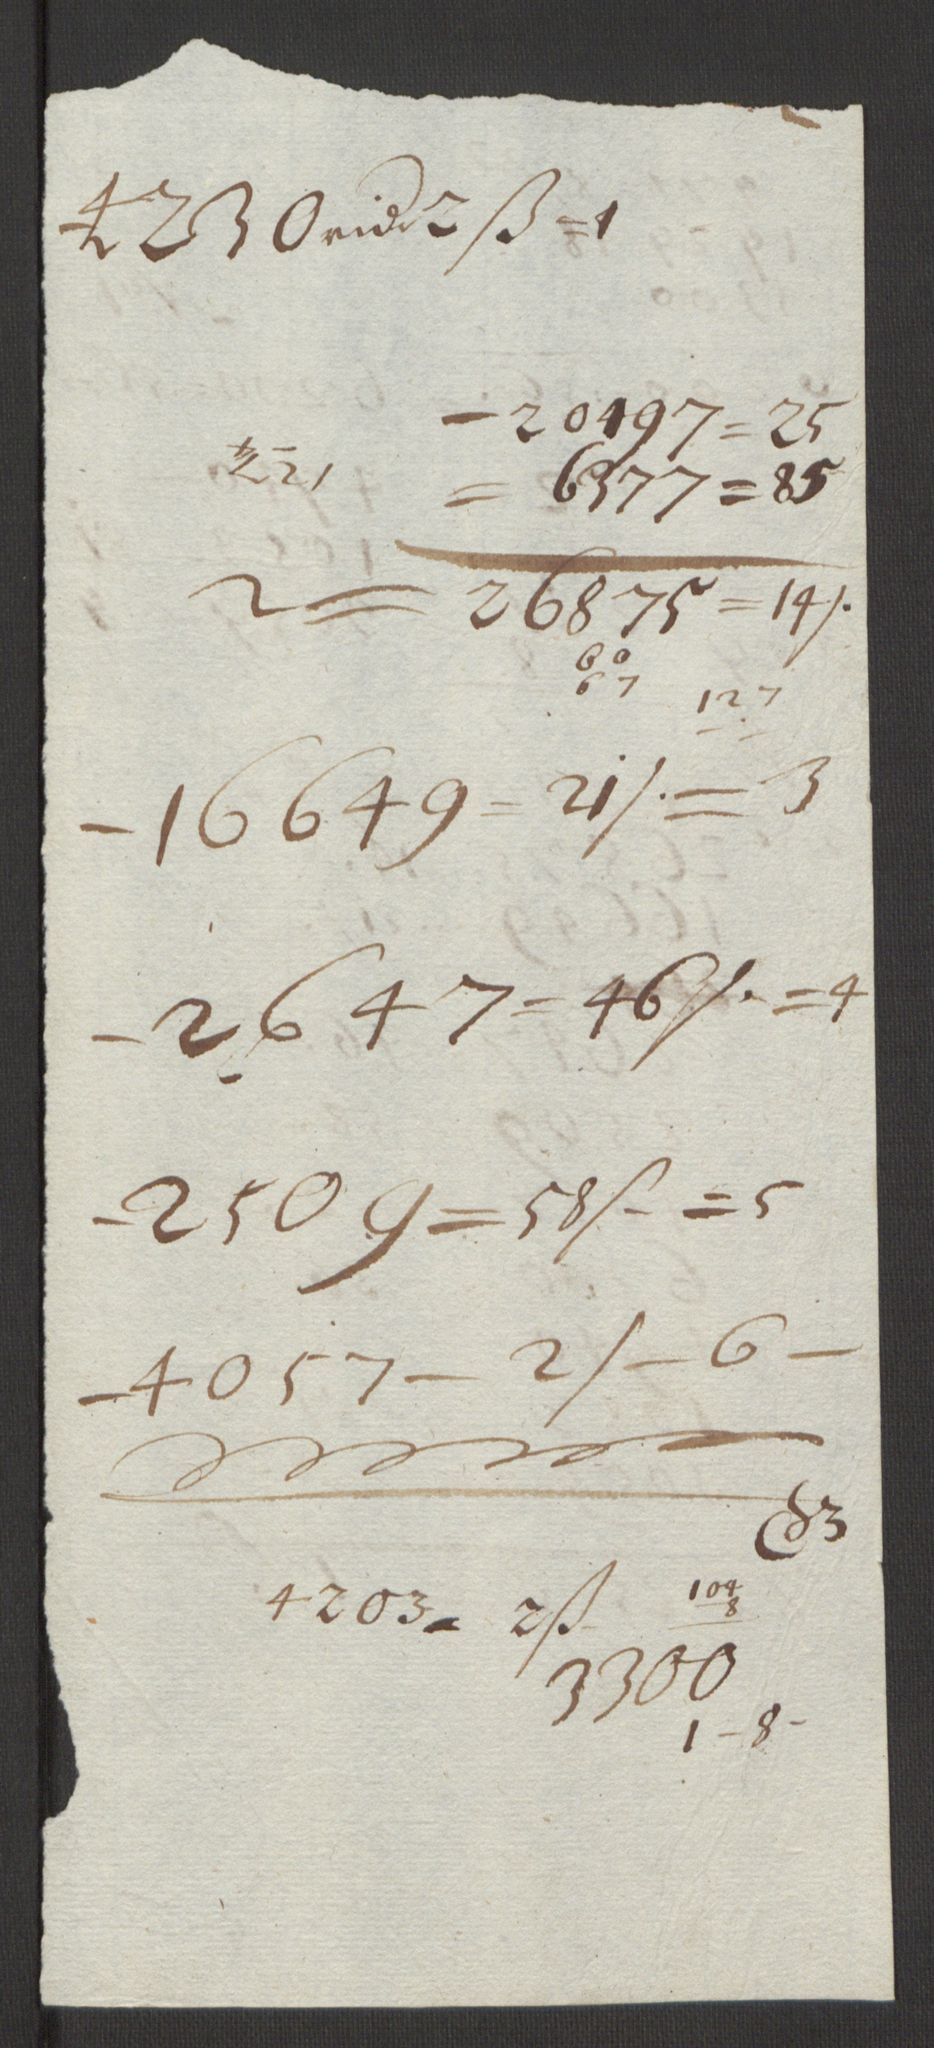 4230 rid 2 ß = 1
- 20497 = 25
= 6377 = 85
221
2 = 26875 = 14 ß.
60
67
127
- 16649 = 21 ß. = 3
- 2647 = 46 ß. = 4
- 2509 = 58 ß - = 5
- 4057 - 2 ß - 6 -
83
4203 - 2 ß
104
8
3300
1 - 8 -